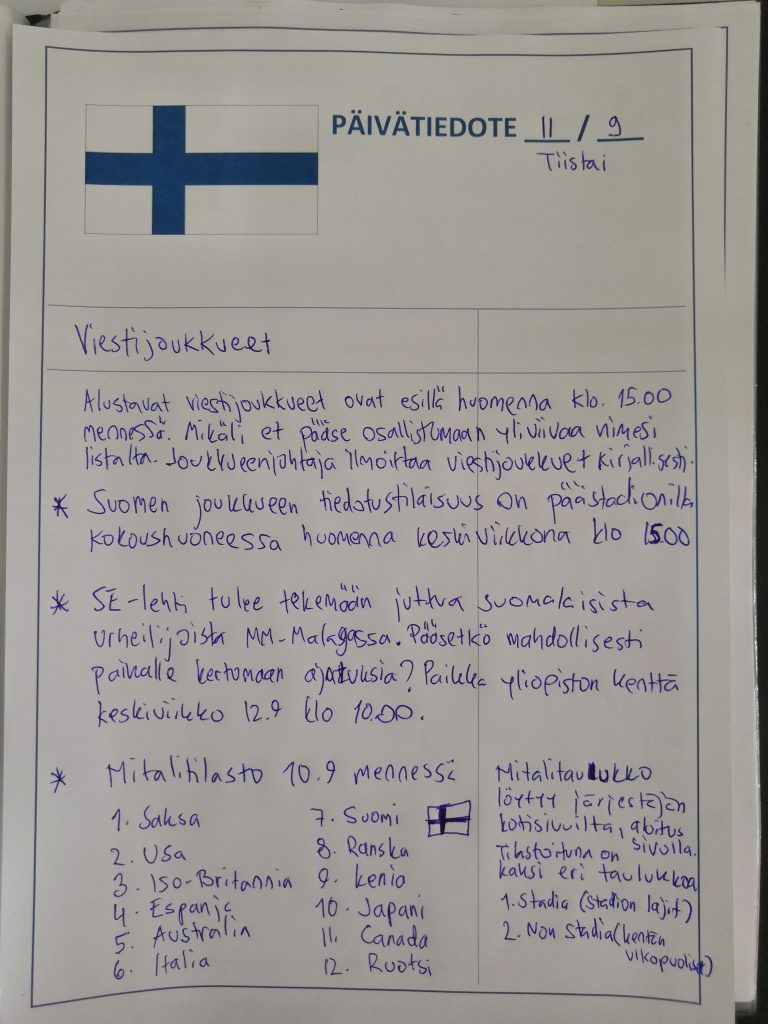 PÄIVÄTIEDOTE 11 / 9
Tiistai
Viestijoukkueet
Alustavat viestijoukkueet ovat esillä huomenna klo. 15.00
mennessä. Mikäli et pääse osallistumaan yliviivaa nimesi
listalta. Joukkueenjohtaja ilmoittaa viestijoukkueet kirjallisesti.
* Suomen joukkueen tiedotustilaisuus on päästadionilla
kokoushuoneessa huomenna keskiviikkona klo 15.00
* SE-lehti tulee tekemään juttua suomalaisista
urheilijoista MM-Malagassa. Pääsetkö mahdollisesti
paikalle kertomaan ajatuksia? Paikka yliopiston kenttä
keskiviikko 12.9 klo 10.00.
* Mitalitilasto 10.9 mennessä
1. Saksa
2. USA
3. Iso-Britannia
4. Espanja
5. Australia
6. Italia
7. Suomi
8. Ranska
9. Kenia
10. Japani
11. Canada
12. Ruotsi
Mitalitaulukko
löytyy järjestäjän
kotisivuilta, aloitus
sivulla.
Tilastoituna on
kaksi eri taulukkoa
1. Stadia (stadion lajit)
2. Non Stadia (kentän
ulkopuoliset)